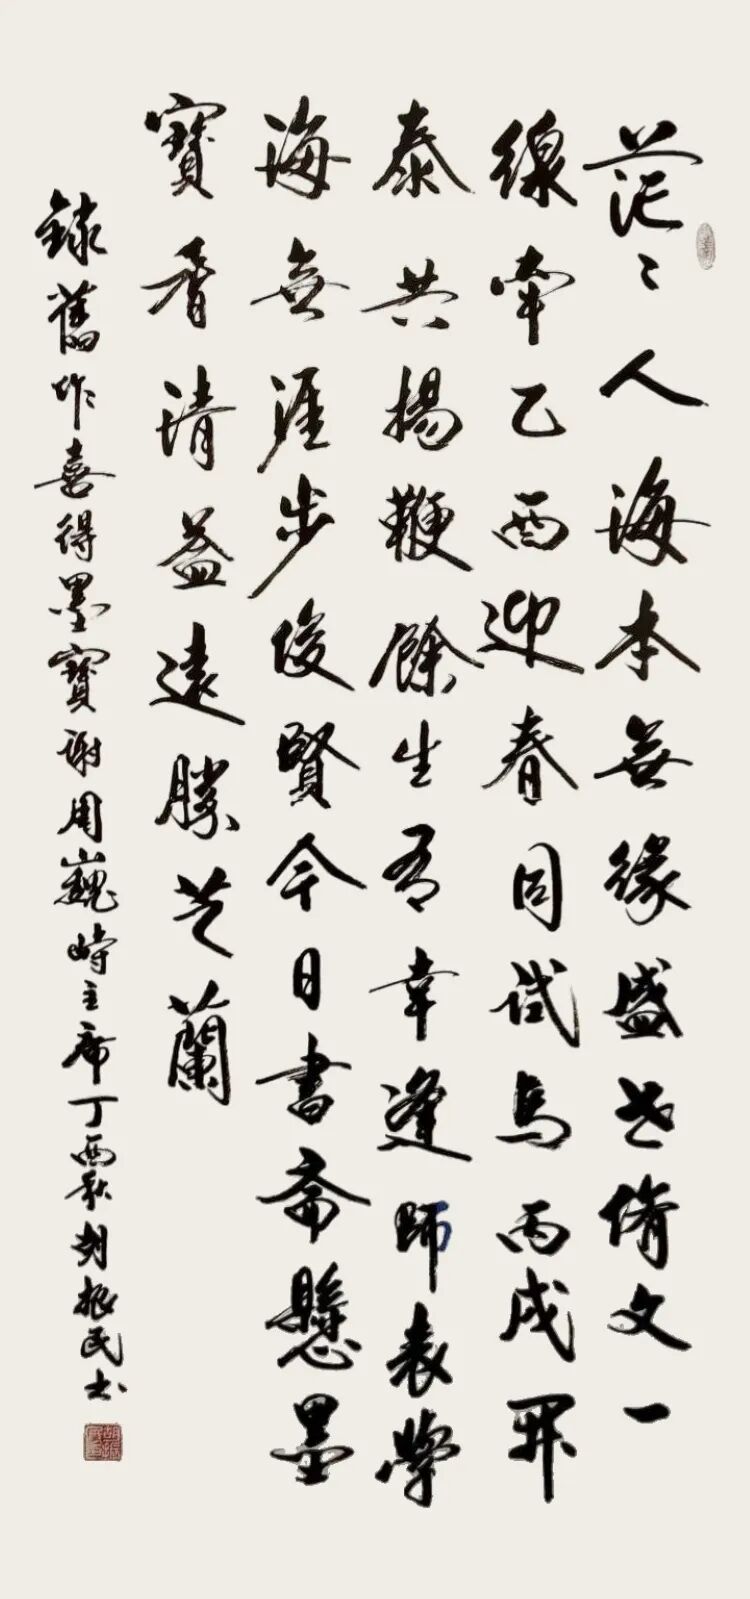 茫々人海本無緣盛世脩文一
線牽乙酉迎春同試馬丙戌開
泰共揚鞭餘生有幸逢師表學
海無涯步俊賢今日書齋懸墨
寶香清益遠勝芝蘭
錄舊作喜得墨寶謝周巍峙主席丁酉秋胡振民書